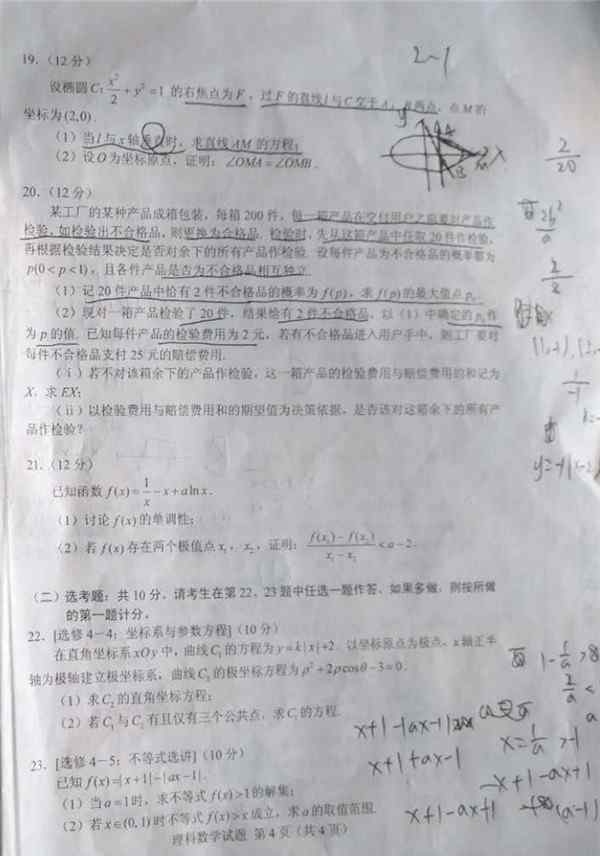 2~1
19.（12分）
设椭圆C: x²/2 + y² = 1 的右焦点为F，过F的直线l与C交于A，B两点，点M的
坐标为(2,0).
（1）当l与x轴垂直时，求直线AM的方程；
（2）设O为坐标原点，证明：∠OMA=∠OMB.
y
A
x
M
B
2/20
20.（12分）
某工厂的某种产品成箱包装，每箱200件，每一箱产品在交付用户之前要对产品作
检验，如检验出不合格品，则更换为合格品. 检验时，先从这箱产品中任取20件作检验，
再根据检验结果决定是否对余下的所有产品作检验. 设每件产品为不合格品的概率都为
p(0<p<1)，且各件产品是否为不合格品相互独立.
（1）记20件产品中恰有2件不合格品的概率为f(p)，求f(p)的最大值点p₀.
（2）现对一箱产品检验了20件，结果恰有2件不合格品，以（1）中确定的p₀作
为p的值. 已知每件产品的检验费用为2元，若有不合格品进入用户手中，则工厂要对
每件不合格品支付25元的赔偿费用.
（ⅰ）若不对该箱余下的产品作检验，这一箱产品的检验费用与赔偿费用的和记为
X，求EX；
（ⅱ）以检验费用与赔偿费用和的期望值为决策依据，是否该对这箱余下的所有产
品作检验？
2b²/a
21.（12分）
已知函数f(x)=1/x−x+a ln x.
（1）讨论f(x)的单调性；
（2）若f(x)存在两个极值点x₁，x₂，证明：(f(x₁)−f(x₂))/(x₁−x₂)<a−2.
（二）选考题：共10分。请考生在第22、23题中任选一题作答。如果多做，则按所做
的第一题计分。
22. [选修4－4：坐标系与参数方程]（10分）
在直角坐标系xOy中，曲线C₁的方程为y=k|x|+2. 以坐标原点为极点，x轴正半
轴为极轴建立极坐标系，曲线C₂的极坐标方程为ρ²+2ρcosθ−3=0.
（1）求C₂的直角坐标方程；
（2）若C₁与C₂有且仅有三个公共点，求C₁的方程.
x+1-|ax-1|
x=1/a>1
x+1+ax-1
-x+1-ax+1
x+1-ax+1
(a-1)
23. [选修4－5：不等式选讲]（10分）
已知f(x)=|x+1|−|ax−1|.
（1）当a=1时，求不等式f(x)>1的解集；
（2）若x∈(0,1)时不等式f(x)>x成立，求a的取值范围.
理科数学试题 第4页（共4页）